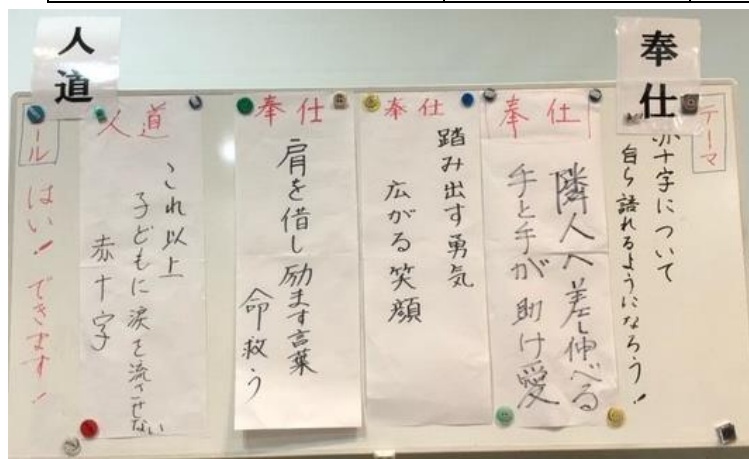 奉仕
テーマ
赤十字について
自ら語れるようになろう！
奉仕
隣人へ差し伸べる
手と手が助け愛
奉仕
踏み出す勇気
広がる笑顔
奉仕
肩を借し励ます言葉
命救う
人道
人道
これ以上
子どもに涙を流させない
赤十字
ール
はい！できます！